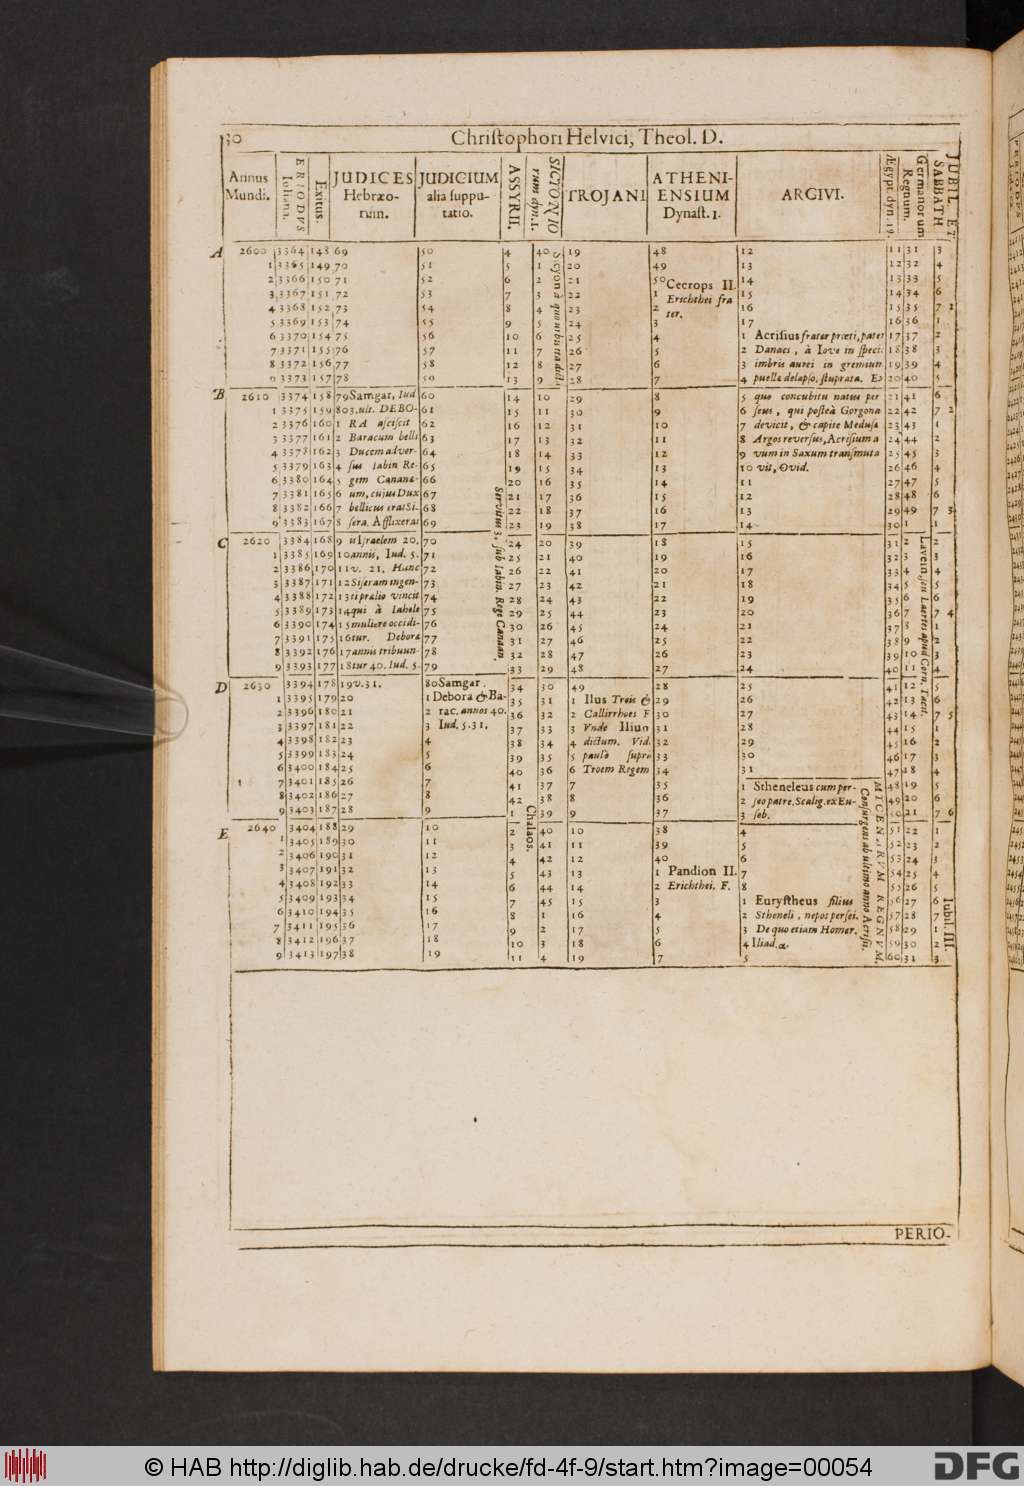 30 Christophori Helvici, Theol. D.
Annus Mundi.
ERIODVS Iuliana.
Exitus.
JUDICES Hebræo-rum.
JUDICIUM alia suppu-tatio.
ASSYRII.
SICYONIO rum dyn. 1.
TROJANI
ATHENI-ENSIUM Dynast. 1.
ARGIVI.
Ægypt. dyn. 19.
Germanorum Regnum.
JUBIL. ET SABBATH
A 2600 3364 148 69 50 4 40 19 48 12 11 31 3
1 3365 149 70 51 5 1 20 49 13 12 32 4
2 3366 150 71 52 6 2 21 50 Cecrops II. 14 13 33 5
3 3367 151 72 53 7 3 22 1 Erichthei fra 15 14 34 6
4 3368 152 73 54 8 4 23 2 ter. 16 15 35 7 1
5 3369 153 74 55 9 5 24 3 17 16 36 1
6 3370 154 75 56 10 6 25 4 1 Acrisius frater prœti, pater 17 37 2
7 3371 155 76 57 11 7 26 5 2 Danaes, à Iove in speci. 18 38 3
8 3372 156 77 58 12 8 27 6 3 imbris aurei in gremium 19 39 4
9 3373 157 78 59 13 9 28 7 4 puellæ delapso, stuprata. Ex 20 40 5
B 2610 3374 158 79 Samgar, Iud 60 14 10 29 8 5 quo concubitu natus per 21 41 6
1 3375 159 80 3. ult. DEBO- 61 15 11 30 9 6 seus, qui posteà Gorgona 22 42 7 2
2 3376 160 1 RA asciscit 62 16 12 31 10 7 devicit, & capite Medusa 23 43 1
3 3377 161 2 Baracum belli 63 17 13 32 11 8 Argos reversus, Acrisium a 24 44 2
4 3378 162 3 Ducem adver- 64 18 14 33 12 9 vum in Saxum transmuta 25 45 3
5 3379 163 4 sus Iabin Re- 65 19 15 34 13 10 vit, Ovid. 26 46 4
6 3380 164 5 gem Canane- 66 20 16 35 14 11 27 47 5
7 3381 165 6 um, cujus Dux 67 21 17 36 15 12 28 48 6
8 3382 166 7 bellicus erat Si- 68 22 18 37 16 13 29 49 7 3
9 3383 167 8 sera. Afflixerat 69 23 19 38 17 14 30 1 1
C 2620 3384 168 9 is Israelem 20. 70 24 20 39 18 15 31 2 2
1 3385 169 10 annis, Iud. 5. 71 25 21 40 19 16 32 3 3
2 3386 170 11 v. 21. Hunc 72 26 22 41 20 17 33 4 4
3 3387 171 12 Siseram ingen- 73 27 23 42 21 18 34 5 5
4 3388 172 13 ti prælio vincit 74 28 24 43 22 19 35 6 6
5 3389 173 14 qui à Iahele 75 29 25 44 23 20 36 7 7 4
6 3390 174 15 muliere occidi- 76 30 26 45 24 21 37 8 1
7 3391 175 16 tur. Debora 77 31 27 46 25 22 38 9 2
8 3392 176 17 annis tribuun- 78 32 28 47 26 23 39 10 3
9 3393 177 18 tur 40. Iud. 5. 79 33 29 48 27 24 40 11 4
D 2630 3394 178 19 v. 31. 80 Samgar. 34 30 49 28 25 41 12 5
1 3395 179 20 1 Debora & Ba- 35 31 1 Ilus Trois & 29 26 42 13 6
2 3396 180 21 2 rac. annos 40. 36 32 2 Callirrhoes F 30 27 43 14 7 5
3 3397 181 22 3 Iud. 5. 31. 37 33 3 Vnde Ilium 31 28 44 15 1
4 3398 182 23 4 38 34 4 dictum. Vid. 32 29 45 16 2
5 3399 183 24 5 39 35 5 paulò supra 33 30 46 17 3
6 3400 184 25 6 40 36 6 Troem Regem 34 31 47 18 4
7 3401 185 26 7 41 37 7 35 1 Stheneleus cum per- 48 19 5
8 3402 186 27 8 42 38 8 36 2 seo patre. Scalig. ex Eu- 49 20 6
9 3403 187 28 9 1 39 9 37 3 seb. 50 21 7 6
E 2640 3404 188 29 10 2 40 10 38 4 51 22 1
1 3405 189 30 11 3 41 11 39 5 52 23 2
2 3406 190 31 12 4 42 12 40 6 53 24 3
3 3407 191 32 13 5 43 13 1 Pandion II. 7 54 25 4
4 3408 192 33 14 6 44 14 2 Erichthei. F. 8 55 26 5
5 3409 193 34 15 7 45 15 3 1 Euryстheus filius 56 27 6
6 3410 194 35 16 8 1 16 4 2 Stheneli, nepos persei. 57 28 7
7 3411 195 36 17 9 2 17 5 3 De quo etiam Homer. 58 29 1
8 3412 196 37 18 10 3 18 6 4 Iliad. α. 59 30 2
9 3413 197 38 19 11 4 19 7 5 60 31 3
Servitus 3. sub Iabin. Rege Canaan.
Chalaos.
Lavein, seu Laertes apud Corn. Tacit.
MICENARVM REGNVM.
Consurgens ab ultimo anno Acrisii.
Iubil. III.
PERIO-
© HAB http://diglib.hab.de/drucke/fd-4f-9/start.htm?image=00054
DFG